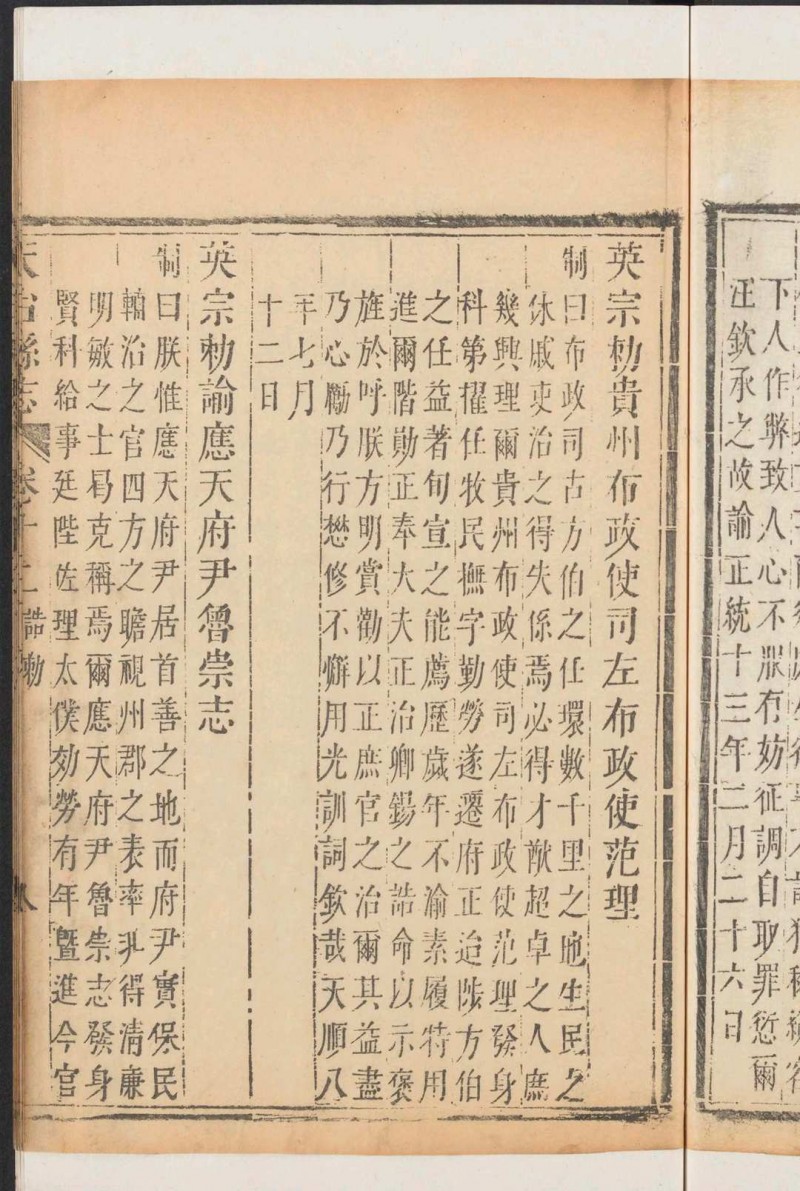 下人作弊致人心不服有妨征調自取罪愆爾
汪欽承之故諭正統十三年二月二十六日
英宗勅貴州布政使司左布政使范理
制曰布政司古方伯之任環數千里之地生民之
休戚吏治之得失係焉必得才猷超卓之人庶
幾興理爾貴州布政使司左布政使范理發身
科第擢任牧民撫字勤勞遂遷府正迨陟方伯
之任益著旬宣之能薦歷歲年不渝素履特用
進爾階勛正奉大夫正治卿錫之誥命以示褒
旌於呼朕方明賞勸以正庶官之治爾其益盡
乃心勵乃行懋修不懈用光訓詞欽哉天順八
年七月
十二日
英宗勅諭應天府尹魯崇志
制曰朕惟應天府尹居首善之地而府尹實保民
輔治之官四方之瞻視州郡之表率非得清廉
明敏之士曷克稱焉爾應天府尹魯崇志發身
賢科給事廷陛佐理太僕効勞有年曁進今官
天台縣志 卷十二 誥勅 八